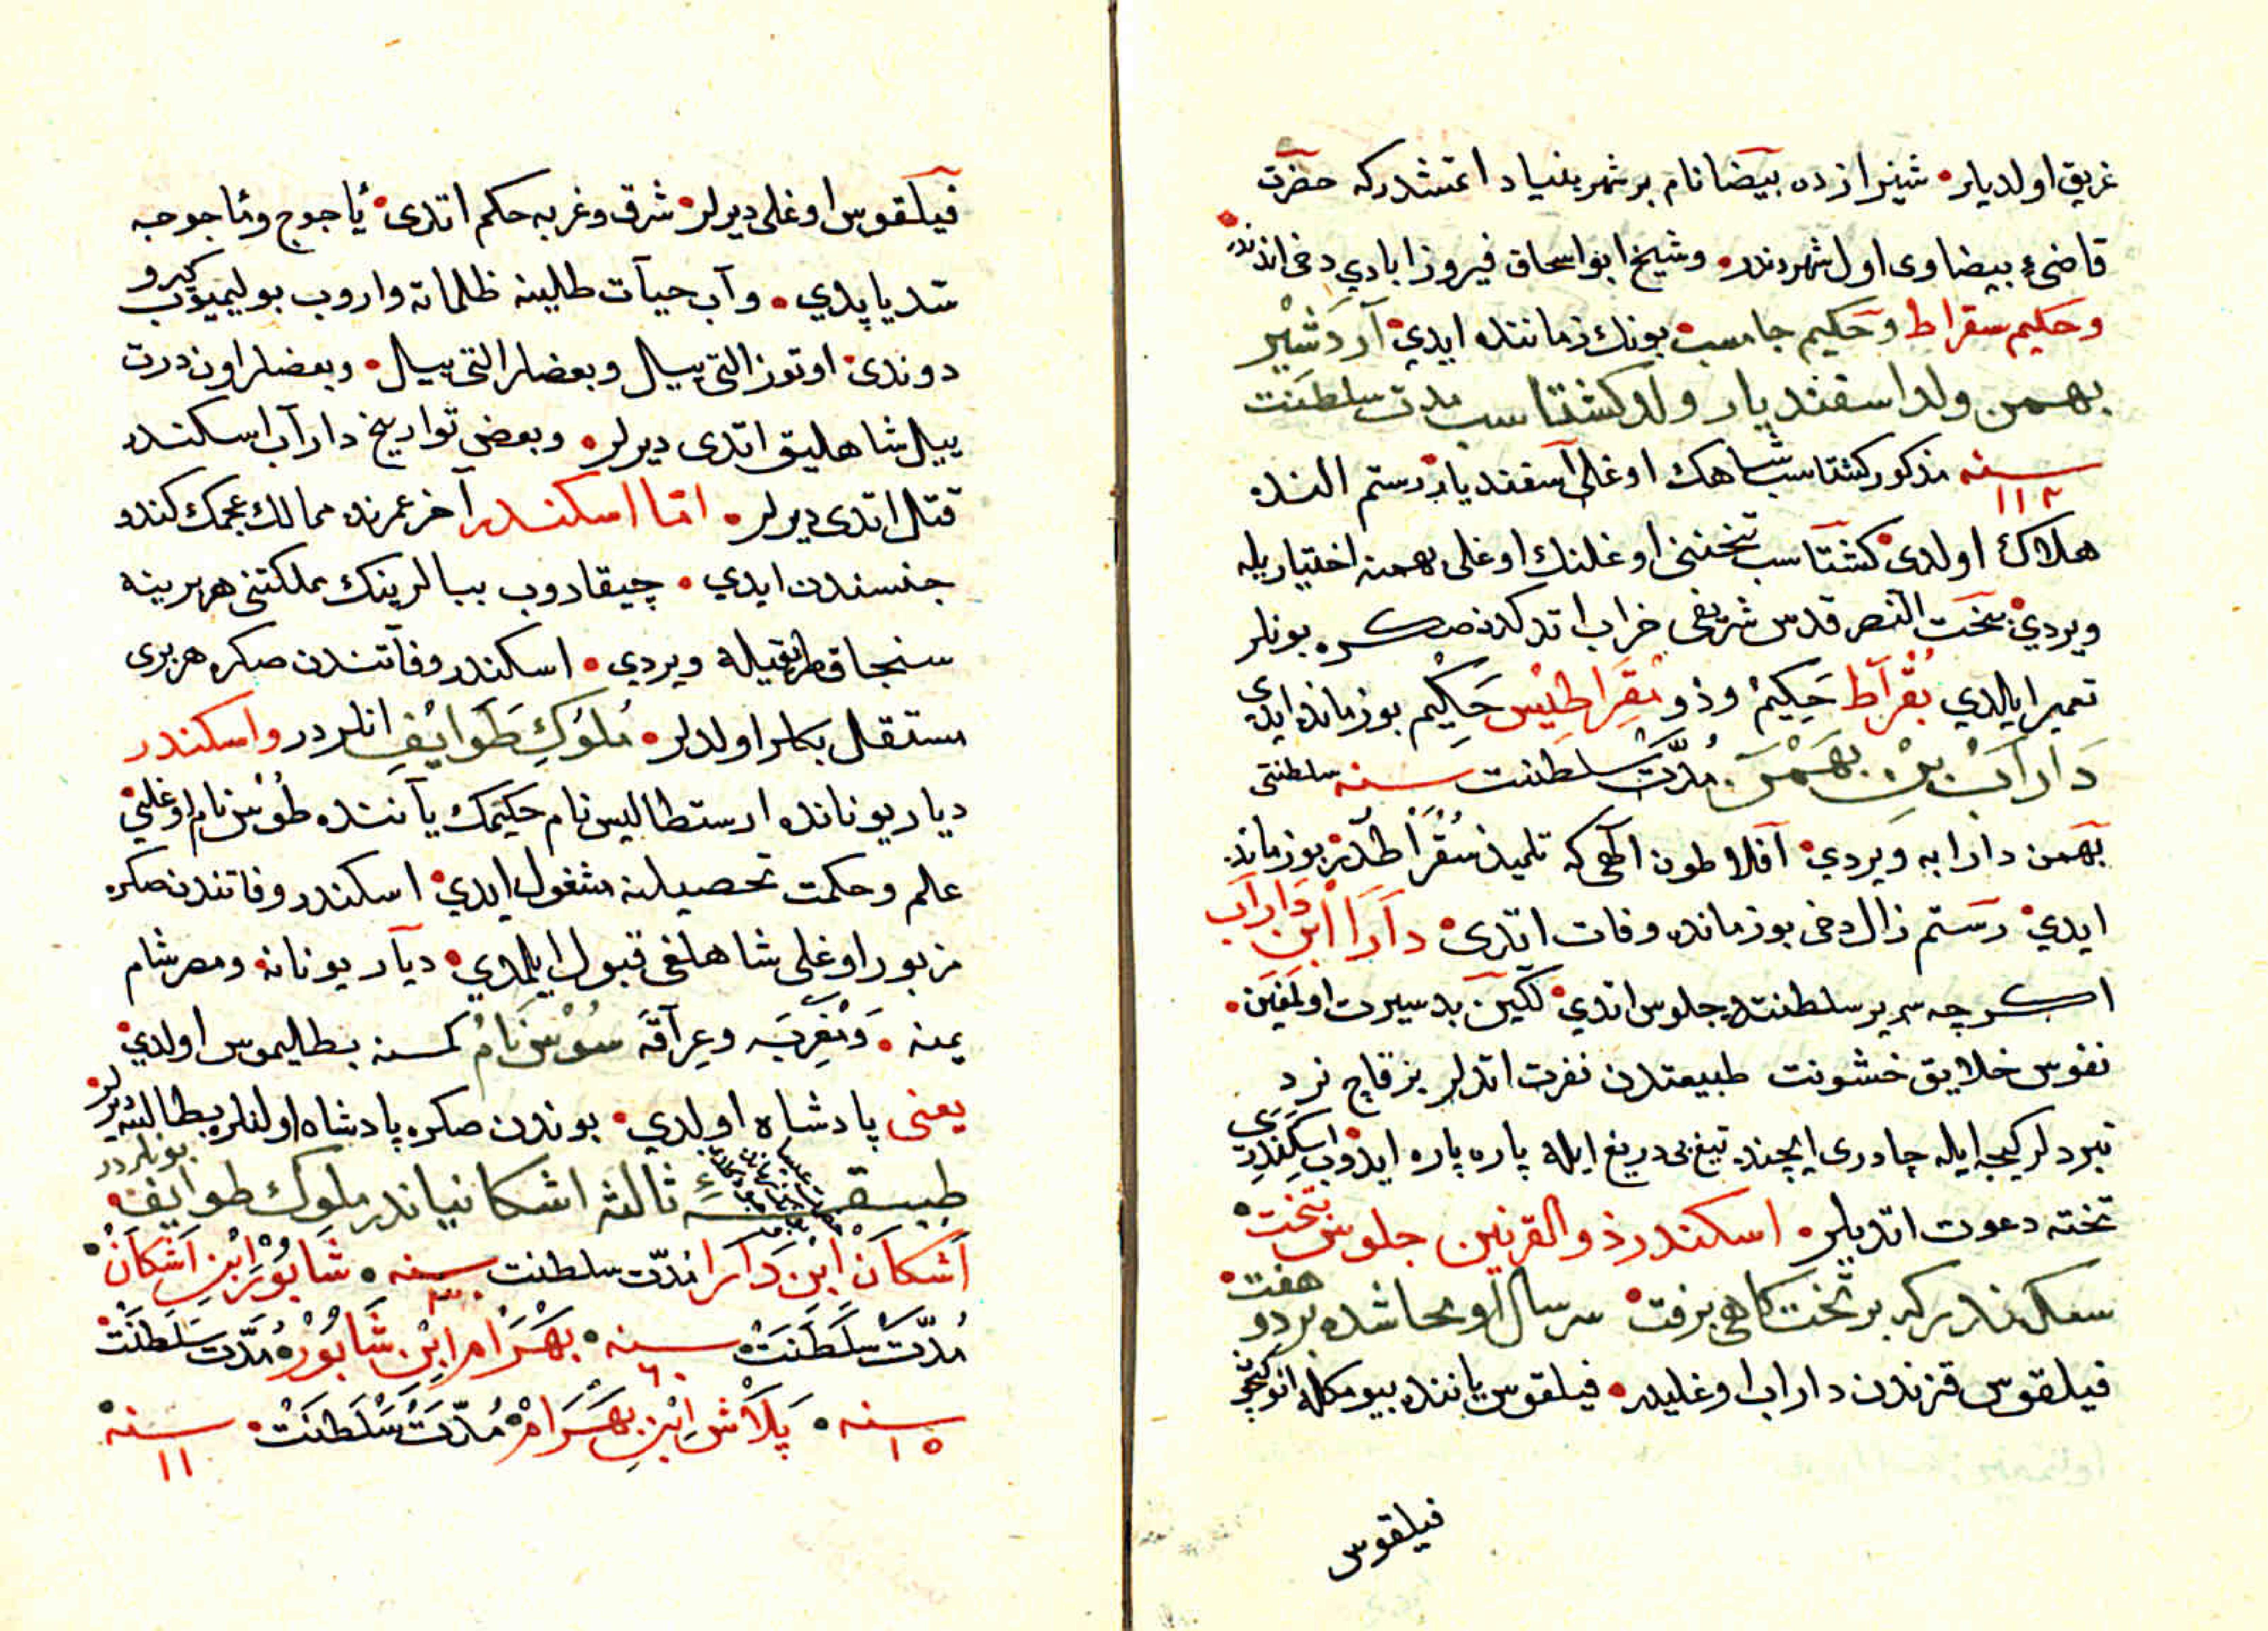 غريق اولديلر شيرازده بيضا نام بر شهر بنياد اتمشدركه حضرت
قاضىء بيضاوى اول شهردندر وشيخ ابو اسحاق فيروزابادي دخى اندندر
وحكيم سقراط وحكيم جاماسب بونك زماننده ايدي آردشير
بهمن ولد اسفنديار ولد كشتاسب مدت سلطنت
سنه ١١٢ مذكور كشتاسب شاهك اوغلى اسفنديار رستم النده
هلاك اولدى كشتاسب تختنى اوغلنك اوغلى بهمنه اختياريله
ويردي بخت النصر قدس شريفى خراب اتدكدن صكره بونلر
تعمير ايلدي بقراط حكيم وذو مقراطيس حكيم بو زمانده ايدي
داراب بن بهمن مدت سلطنت سنه سلطنتى
بهمن دارابه ويردي افلاطون الهى كه تلميذ سقراطدر بو زمانده
ايدي رستم زال دخى بو زمانده وفات اتدى دارا ابن داراب
اكرچه سرير سلطنتده جلوس اتدي لكين بد سيرت اولمغين
نفوس خلايق خشونت طبيعتدن نفرت اتدلر بر قاچ نرد
نبردلر كيجه ايله چادرى ايچنده تيغ بى دريغ ايله پاره پاره ايدوب اسكندرى
تخته دعوت اتديلر اسكندر ذو القرنين جلوس تخت
سكندر كه بر تخت كاهى برفت سر سال او محا شده بر دو هفت
فيلقوس قزندن داراب اوغليدر فيلقوس ياننده بيومكله انوكيچون
فيلقوس
فيلقوس اوغلى ديرلر شرق وغربه حكم اتدى يأجوج ومأجوجه
سد ياپدي وآب حيات طالبنه ظلماته واروب بوليميوب كيرو
دوندى اوتوز التى ييل وبعضلر التى ييل وبعضلر اون درت
ييل شاهليق اتدى ديرلر وبعضى تواريخ داراب اسكندر
قتل اتدى ديرلر اما اسكندر آخر عمرنده ممالك عجمك كندو
جنسندن ايدي چيقاروب ببالرينك مملكتنى هر برينه
سنجاق طريقيله ويردي اسكندر وفاتندن صكره هر برى
مستقل بكلر اولدلر ملوك طوايف انلردر واسكندر
ديار يونانده ارستطاليس نام حكيمك ياننده طوس نام اوغلنى
علم وحكمت تحصيلنه مشغول ايدي اسكندر وفاتندن صكره
مزبور اوغلى شاهلغى قبول ايلمدي ديار يونانه ومصر شام
يمنه ومغربه وعراقه سوس نام كمسنه بطاليموس اولدي
يعنى پادشاه اولدي بوندن صكره پادشاه اولنلره بطالسه ديرلر
طبقهء ثالثه اشكانياندر ملوك طوايف بونلردر
اشكان ابن دارا مدت سلطنت سنه شابور ابن اشكان
مدت سلطنت سنه ٦٠ بهرام ابن شابور مدت سلطنت
سنه ١٥ پلاش ابن بهرام مدت سلطنت سنه ١١